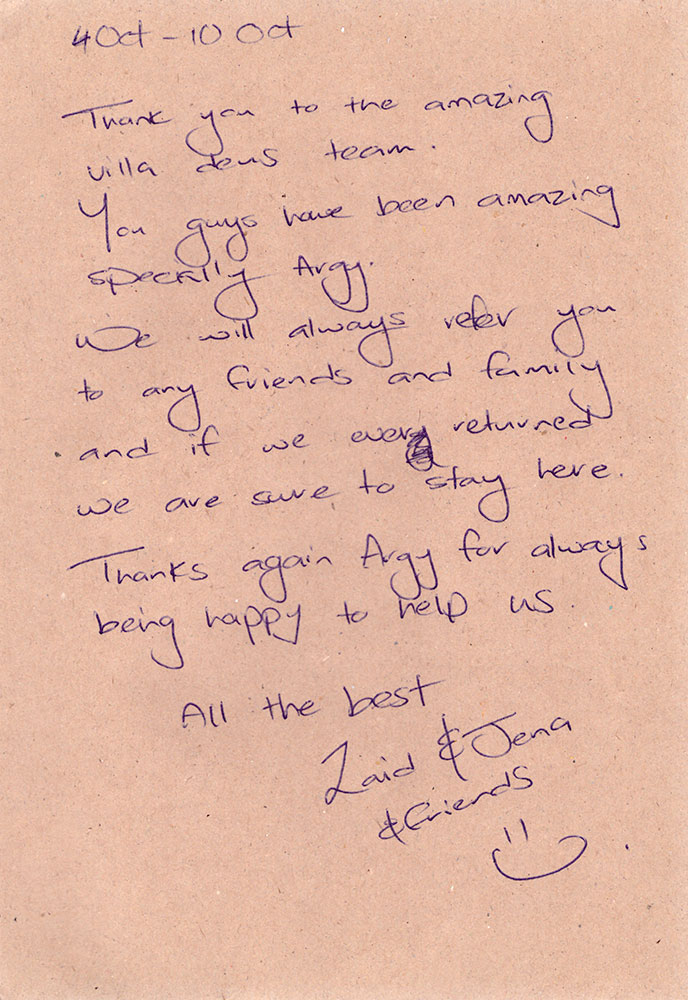 4 Oct - 10 Oct
Thank you to the amazing
villa deus team.
You guys have been amazing
specially Argy.
We will always refer you
to any friends and family
and if we ever returned
we are sure to stay here.
Thanks again Argy for always
being happy to help us.
All the best
Zaid & Jena
& friends